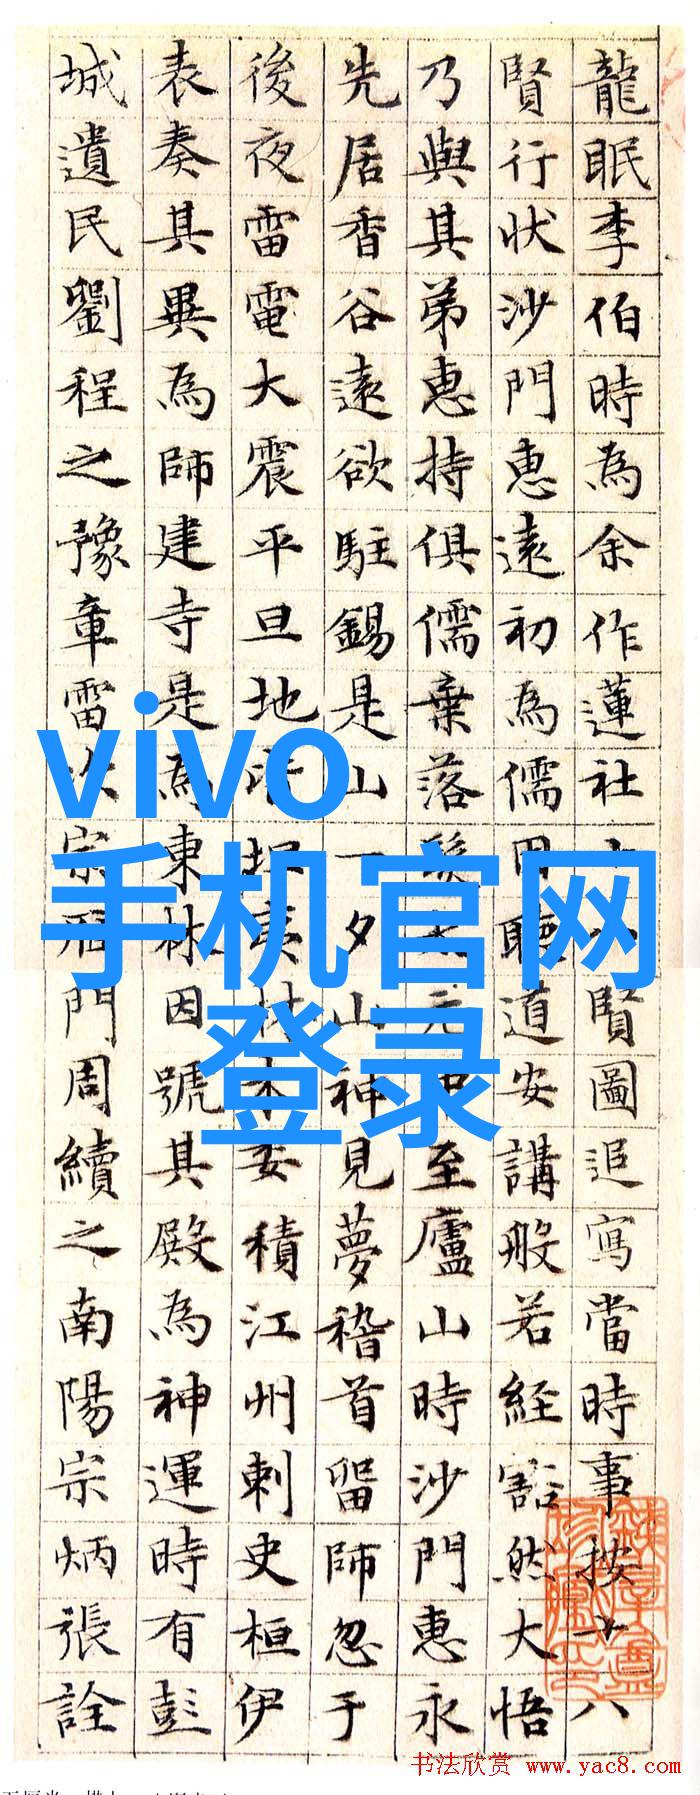 龍眠李伯時為余作蓮社賢圖追寫當時事按十八
賢行狀沙門惠遠初為儒因聽道安講般若経豁然大悟
乃與其弟惠持俱儒棄落元至廬山時沙門惠永
先居香谷遠欲駐錫是山一夕山神見夢稽首留師忽于
後夜雷電大震平旦地坦夷材木委積江州刺史桓伊
表奏其異為師建寺是為東林因號其殿為神運時有彭
城遺民劉程之豫章雷次宗雁門周續之南陽宗炳張詮
vivo
手机官网
登录
书法欣赏 www.yac8.com